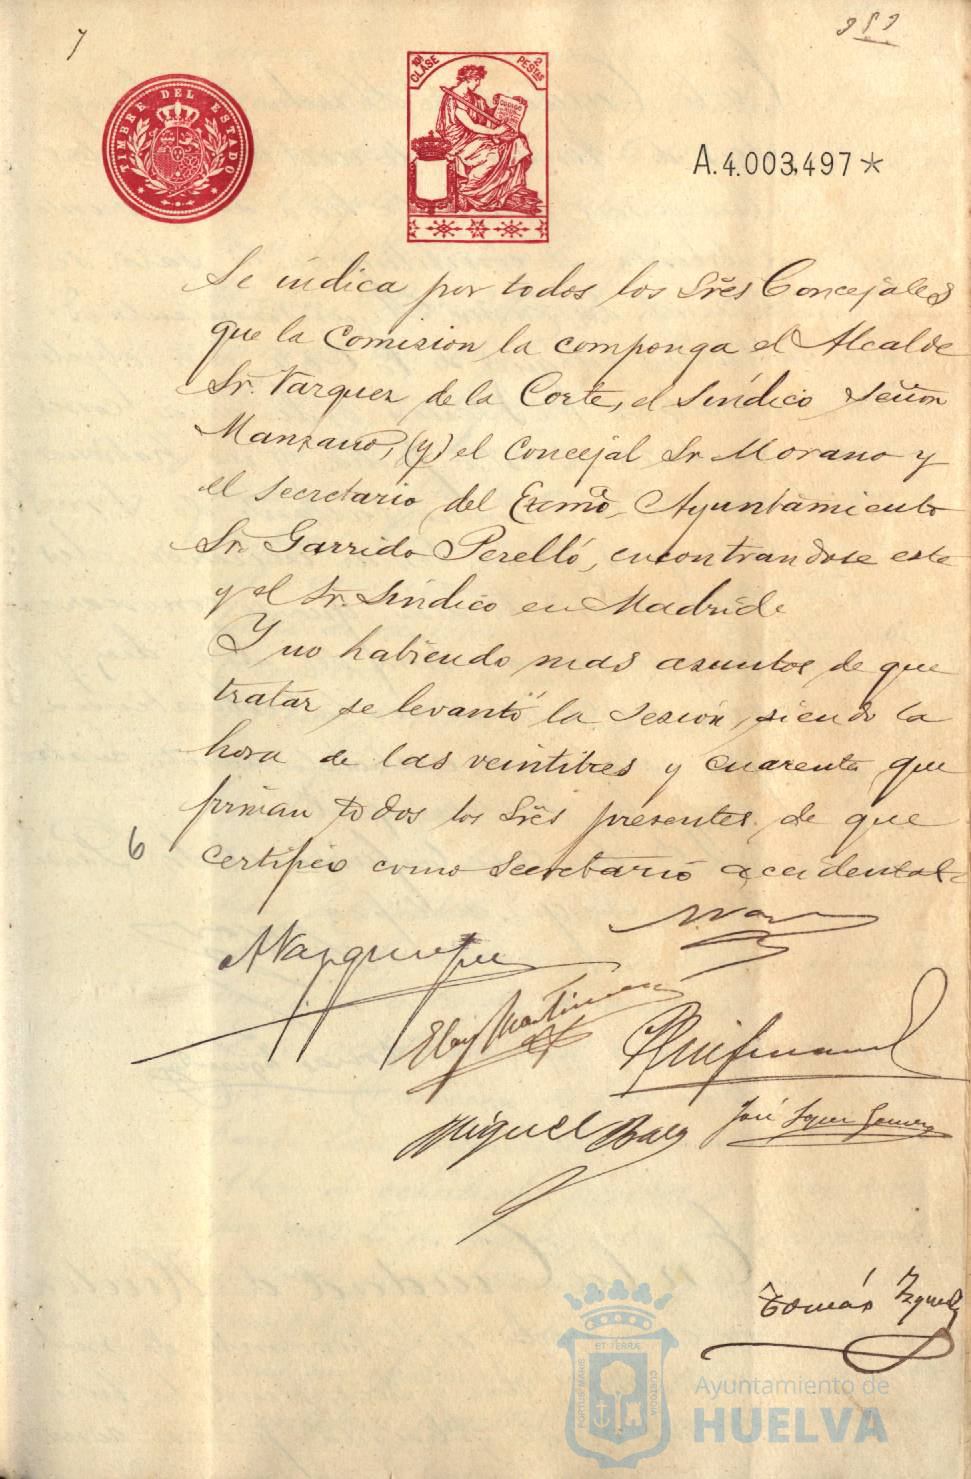 7
TIMBRE DEL ESTADO
10ª CLASE
2 PESTAS
CODIGO
A.4.003,497*
Se indica por todos los Sres Concejales
que la Comision la componga el Alcalde
Sr. Vazquez de la Corte, el Síndico señor
Manzano, (y) el Concejal Sr Morano y
el secretario del Excmo, Ayuntamiento
Sr. Garrido Perelló, encontrandose este
y el Sr. Síndico en Madrid
Y no habiendo mas asuntos de que
tratar se levantó la sesión, siendo la
hora de las veintitres y cuarenta que
firman todos los Sres presentes de que
6
certifico como secretario accidental
Eloy Martinez
Miguel Baez
José
Tomás
ET TERRÆ
PORTUS MARIS
CUSTODIA
Ayuntamiento de
HUELVA